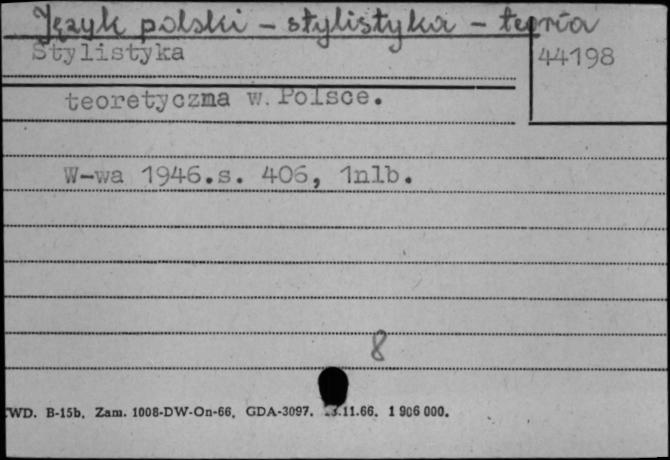 Język polski - stylistyka - teoria
Stylistyka
44198
teoretyczna w Polsce.
W-wa 1946.s. 406, 1nlb.
8
WD. B-15b, Zam. 1008-DW-On-66, GDA-3097. 11.66. 1 906 000.